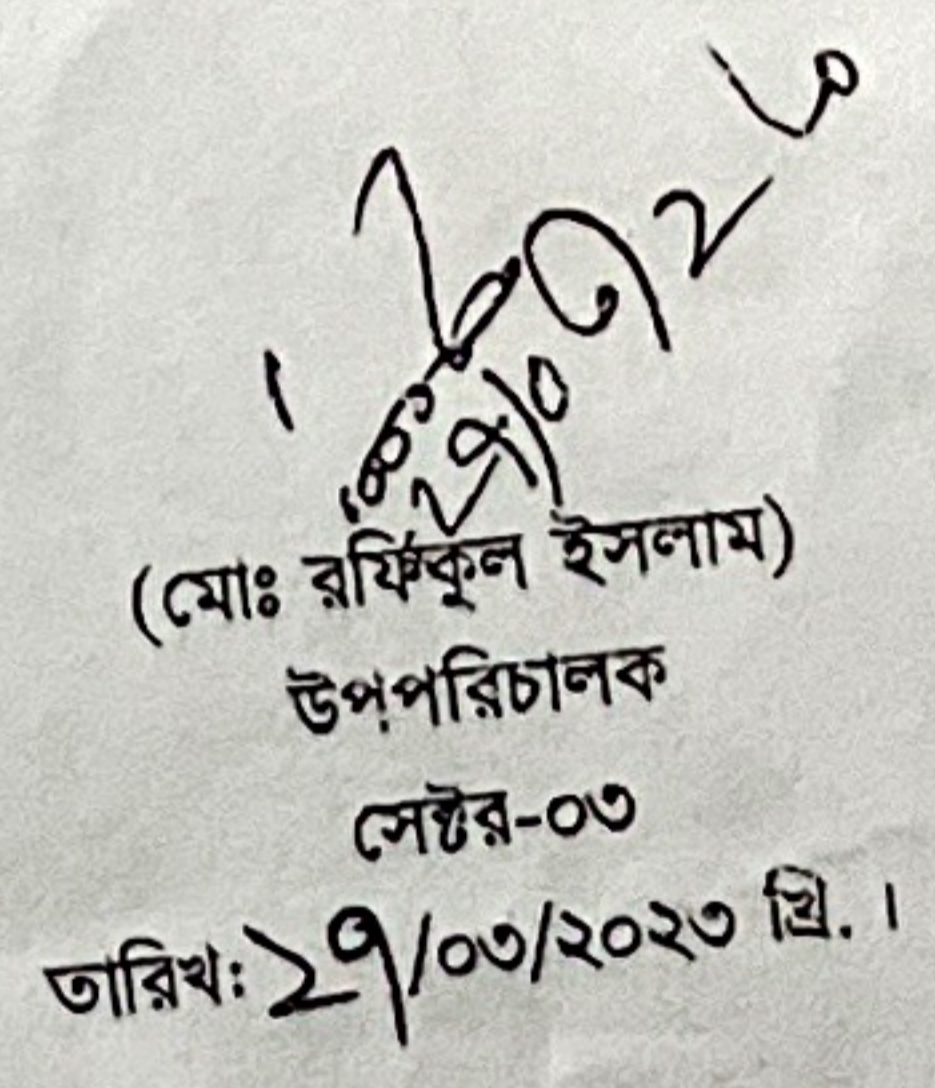 (মোঃ রফিকুল ইসলাম)
উপপরিচালক
সেক্টর-০৩
তারিখ: ২৭/০৩/২০২৩ খ্রি. ।